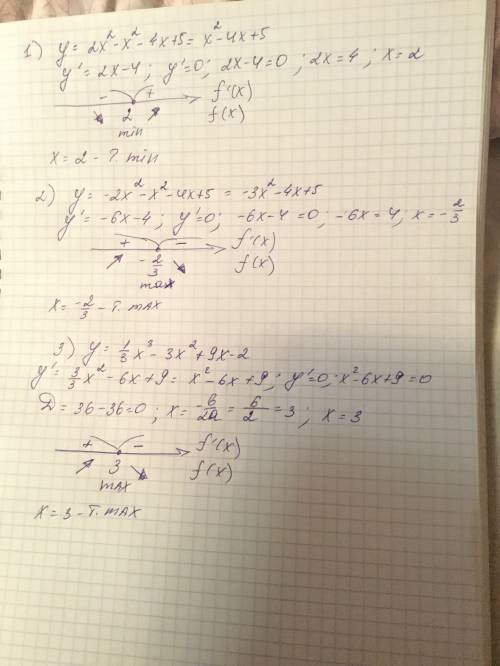 1) y = 2x² - x² - 4x + 5 = x² - 4x + 5
y' = 2x - 4 ; y' = 0 ; 2x - 4 = 0 ; 2x = 4 ; x = 2
- + f'(x)
2 f(x)
min
x = 2 - т. min
2) y = -2x² - x² - 4x + 5 = -3x² - 4x + 5
y' = -6x - 4 ; y' = 0 ; -6x - 4 = 0 ; -6x = 4 ; x = -2/3
+ - f'(x)
-2/3 f(x)
max
x = -2/3 - т. max
3) y = 1/3 x³ - 3x² + 9x - 2
y' = 3/3 x² - 6x + 9 = x² - 6x + 9 ; y' = 0 ; x² - 6x + 9 = 0
D = 36 - 36 = 0 ; x = -b/2a = 6/2 = 3 ; x = 3
+ - f'(x)
3 f(x)
max
x = 3 - т. max